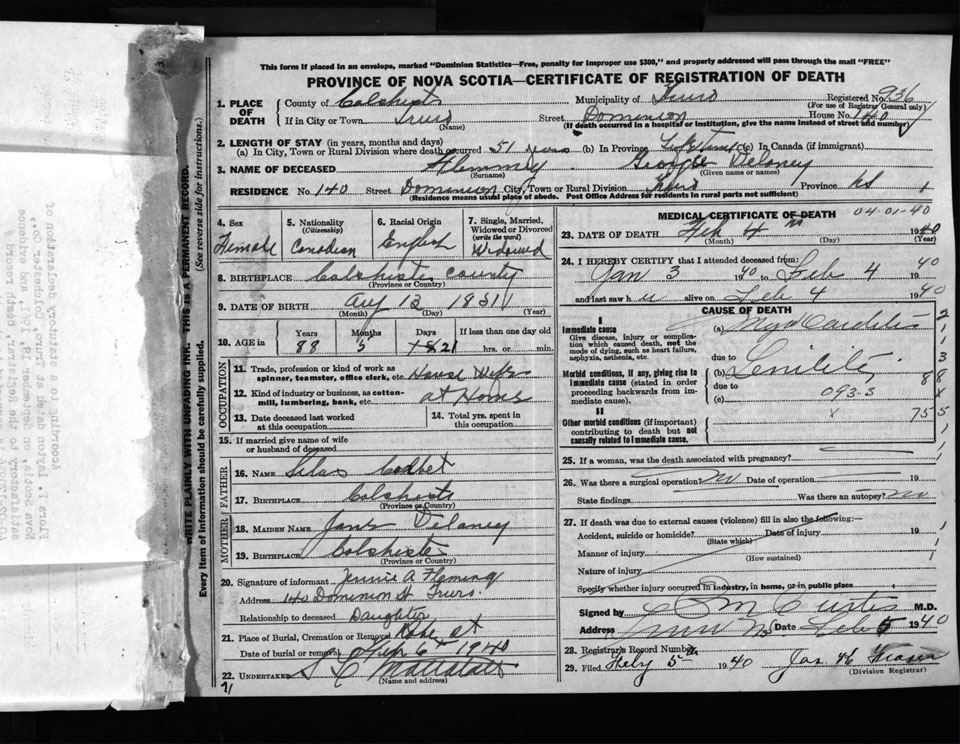 This form if placed in an envelope, marked "Dominion Statistics—Free, penalty for improper use $300," and properly addressed will pass through the mail "FREE"
PROVINCE OF NOVA SCOTIA—CERTIFICATE OF REGISTRATION OF DEATH
1. PLACE OF DEATH
County of Colchester Municipality of Truro Registered No. 936
(For use of Registrar General only)
If in City or Town Truro Street Dominion House No. 140
(Name) (If death occurred in a hospital or institution, give the name instead of street and number)
2. LENGTH OF STAY (in years, months and days)
(a) In City, Town or Rural Division where death occurred 51 years (b) In Province (c) In Canada (if immigrant)
3. NAME OF DECEASED Flemming George Delaney
(Surname) (Given name or names)
RESIDENCE No. 140 Street Dominion City, Town or Rural Division Truro Province NS
(Residence means usual place of abode. Post Office Address for residents in rural parts not sufficient)
WRITE PLAINLY WITH UNFADING INK. THIS IS A PERMANENT RECORD.
Every item of information should be carefully supplied. (See reverse side for instructions.)
4. Sex Female
5. Nationality (Citizenship) Canadian
6. Racial Origin English
7. Single, Married, Widowed or Divorced (write the word) Widowed
8. BIRTHPLACE Colchester County
(Province or Country)
9. DATE OF BIRTH Aug 13 1851
(Month) (Day) (Year)
10. AGE in Years 88 Months 5 Days 21 If less than one day hrs. or min.
OCCUPATION
11. Trade, profession or kind of work as spinner, teamster, office clerk, etc. House Wife
12. Kind of industry or business, as cotton-mill, lumbering, bank, etc. at Home
13. Date deceased last worked at this occupation
14. Total yrs. spent in this occupation
15. If married give name of wife or husband of deceased
FATHER
16. NAME Silas Corbet
17. BIRTHPLACE Colchester
(Province or Country)
MOTHER
18. MAIDEN NAME Jane Delaney
19. BIRTHPLACE Colchester
(Province or Country)
20. Signature of informant Jennie A Fleming
Address 140 Dominion St Truro.
Relationship to deceased Daughter
21. Place of Burial, Cremation or Removal
Date of burial or removal Feb 6 1940
22. UNDERTAKER
(Name and address)
MEDICAL CERTIFICATE OF DEATH 04-01-40
23. DATE OF DEATH Feb 4 1940
(Month) (Day) (Year)
24. I HEREBY CERTIFY that I attended deceased from:
Jan 3 1940 to Feb 4 1940
and last saw h alive on Feb 4 1940
CAUSE OF DEATH
I
Immediate cause
Give disease, injury or complication which caused death, not the mode of dying, such as heart failure, asphyxia, asthenia, etc.
(a) Myocarditis
due to
Morbid conditions, if any, giving rise to immediate cause (stated in order proceeding backwards from immediate cause).
(b) Senility
due to 093-3
(c)
II
Other morbid conditions (if important) contributing to death but not causally related to immediate cause.
25. If a woman, was the death associated with pregnancy?
26. Was there a surgical operation? no Date of operation 19
State findings Was there an autopsy? no
27. If death was due to external causes (violence) fill in also the following:—
Accident, suicide or homicide? Date of injury 19
(State which)
Manner of injury
(How sustained)
Nature of injury
Specify whether injury occurred in industry, in home, or in public place
Signed by Curtis M.D.
Address Truro NS Date Feb 5 1940
28. Registrar's Record Number
29. Filed Feby 5 1940 Jas. Fraser
(Division Registrar)